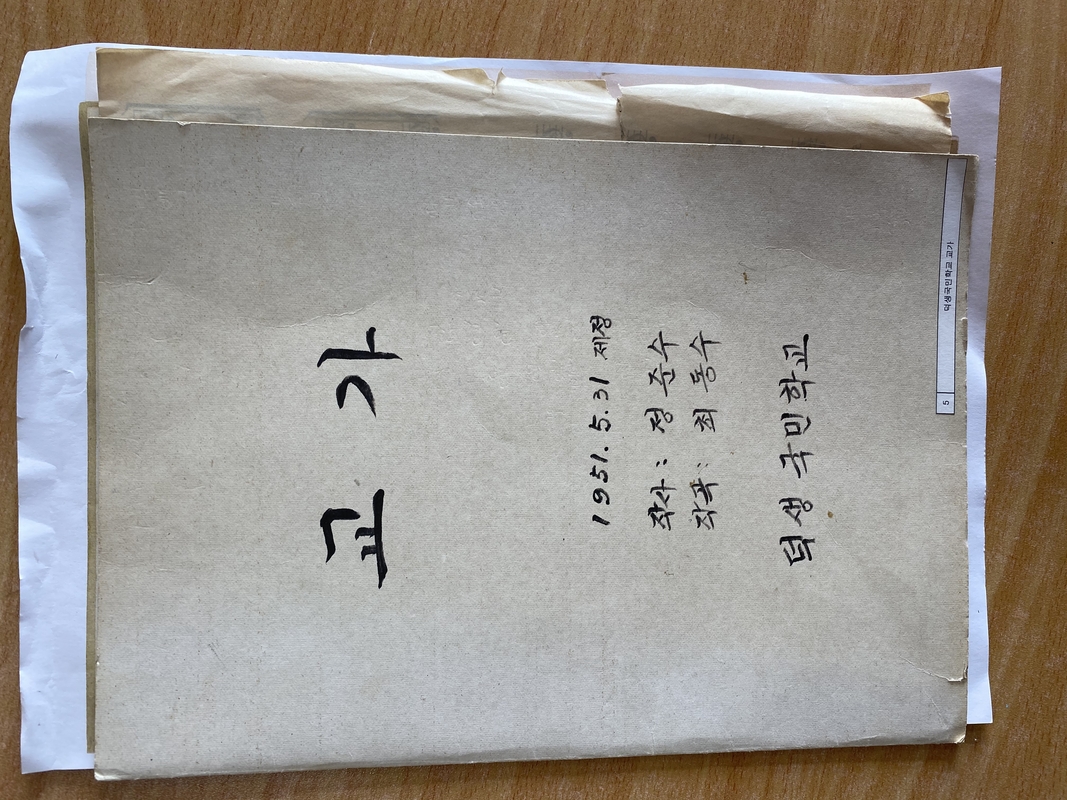 교가
1951. 5. 31 제정
작사 : 정준수
작곡 : 최동수
덕생 국민학교
5 덕생국민학교 교가